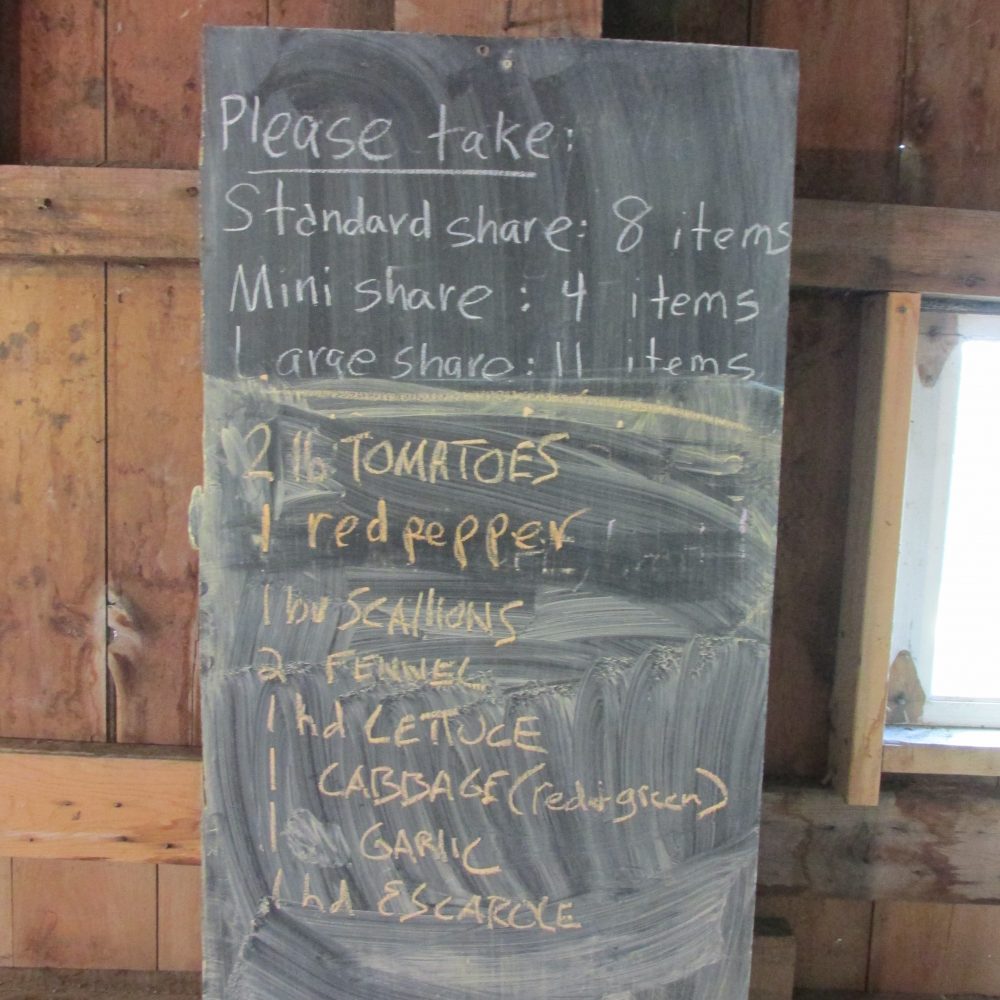 Please take:
Standard share: 8 items
Mini share: 4 items
Large share: 11 items
2 lb TOMATOES
1 red pepper
1 bu SCAllIONS
2 FENNEL
1 hd LETTUCE
1 CABBAGE (red + green)
1 GARlIC
1 hd ESCAROLE